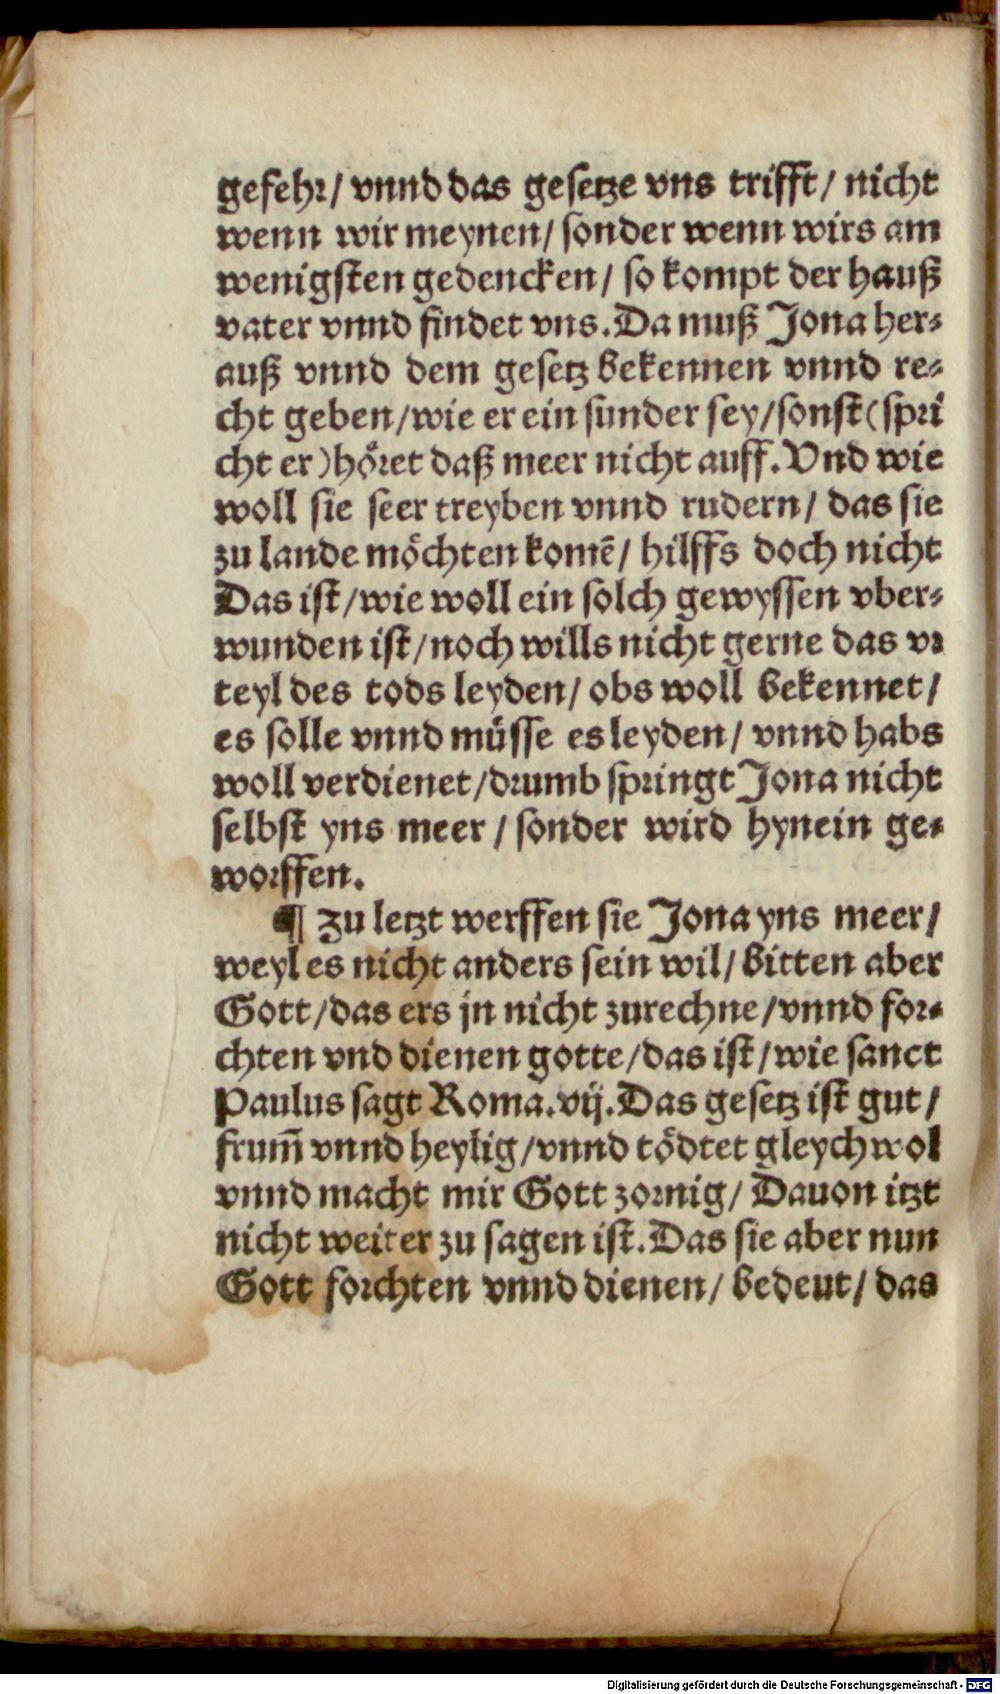 gefehr/ vnnd das gesetze vns trifft/ nicht
wenn wir meynen/ sonder wenn wirs am
wenigsten gedencken/ so kompt der hauß
vater vnnd findet vns. Da muß Jona her⸗
auß vnnd dem gesetz bekennen vnnd re⸗
cht geben/ wie er ein sunder sey/ sonst (spri
cht er) hoͤret daß meer nicht auff. Vnd wie
woll sie seer treyben vnnd rudern/ das sie
zu lande moͤchten komē/ hilffs doch nicht
Das ist/ wie woll ein solch gewyssen vber⸗
wunden ist/ noch wills nicht gerne das vr
teyl des tods leyden/ obs woll bekennet/
es solle vnnd muͤsse es leyden/ vnnd habs
woll verdienet/ drumb springt Jona nicht
selbst yns meer/ sonder wird hynein ge⸗
worffen.
¶ Zu letzt werffen sie Jona yns meer/
weyl es nicht anders sein wil/ bitten aber
Gott/ das ers jn nicht zurechne/ vnnd for⸗
chten vnd dienen gotte/ das ist/ wie sanct
Paulus sagt Roma. vij. Das gesetz ist gut/
frum̄ vnnd heylig/ vnnd toͤdtet gleychwol
vnnd macht mir Gott zornig/ Dauon itzt
nicht weiter zu sagen ist. Das sie aber nun
Gott forchten vnnd dienen/ bedeut/ das
Digitalisierung gefördert durch die Deutsche Forschungsgemeinschaft - DFG